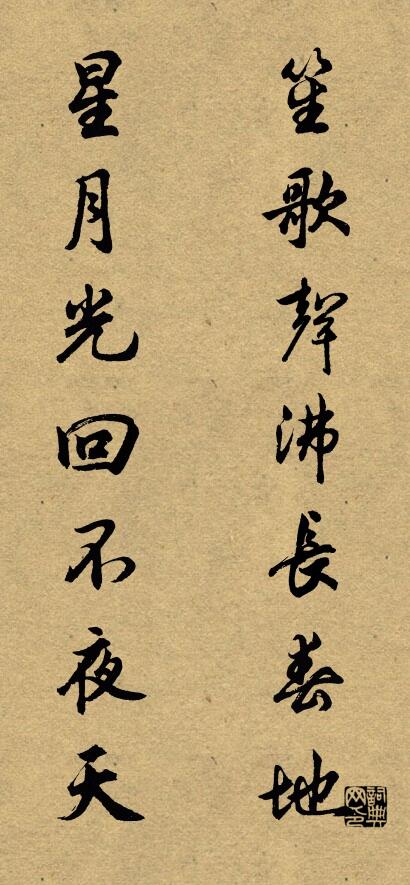 笙歌聲沸長春地
星月光回不夜天
詞典网